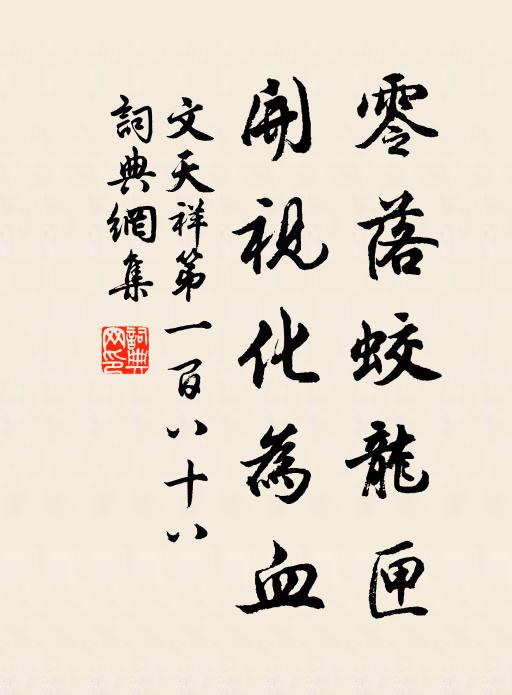 零落蛟龍匣
開視化為血
文天祥第一百八十八
詞典網集
詞典網印